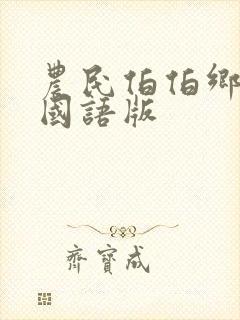 農民伯伯鄉
國語版
齊寶成